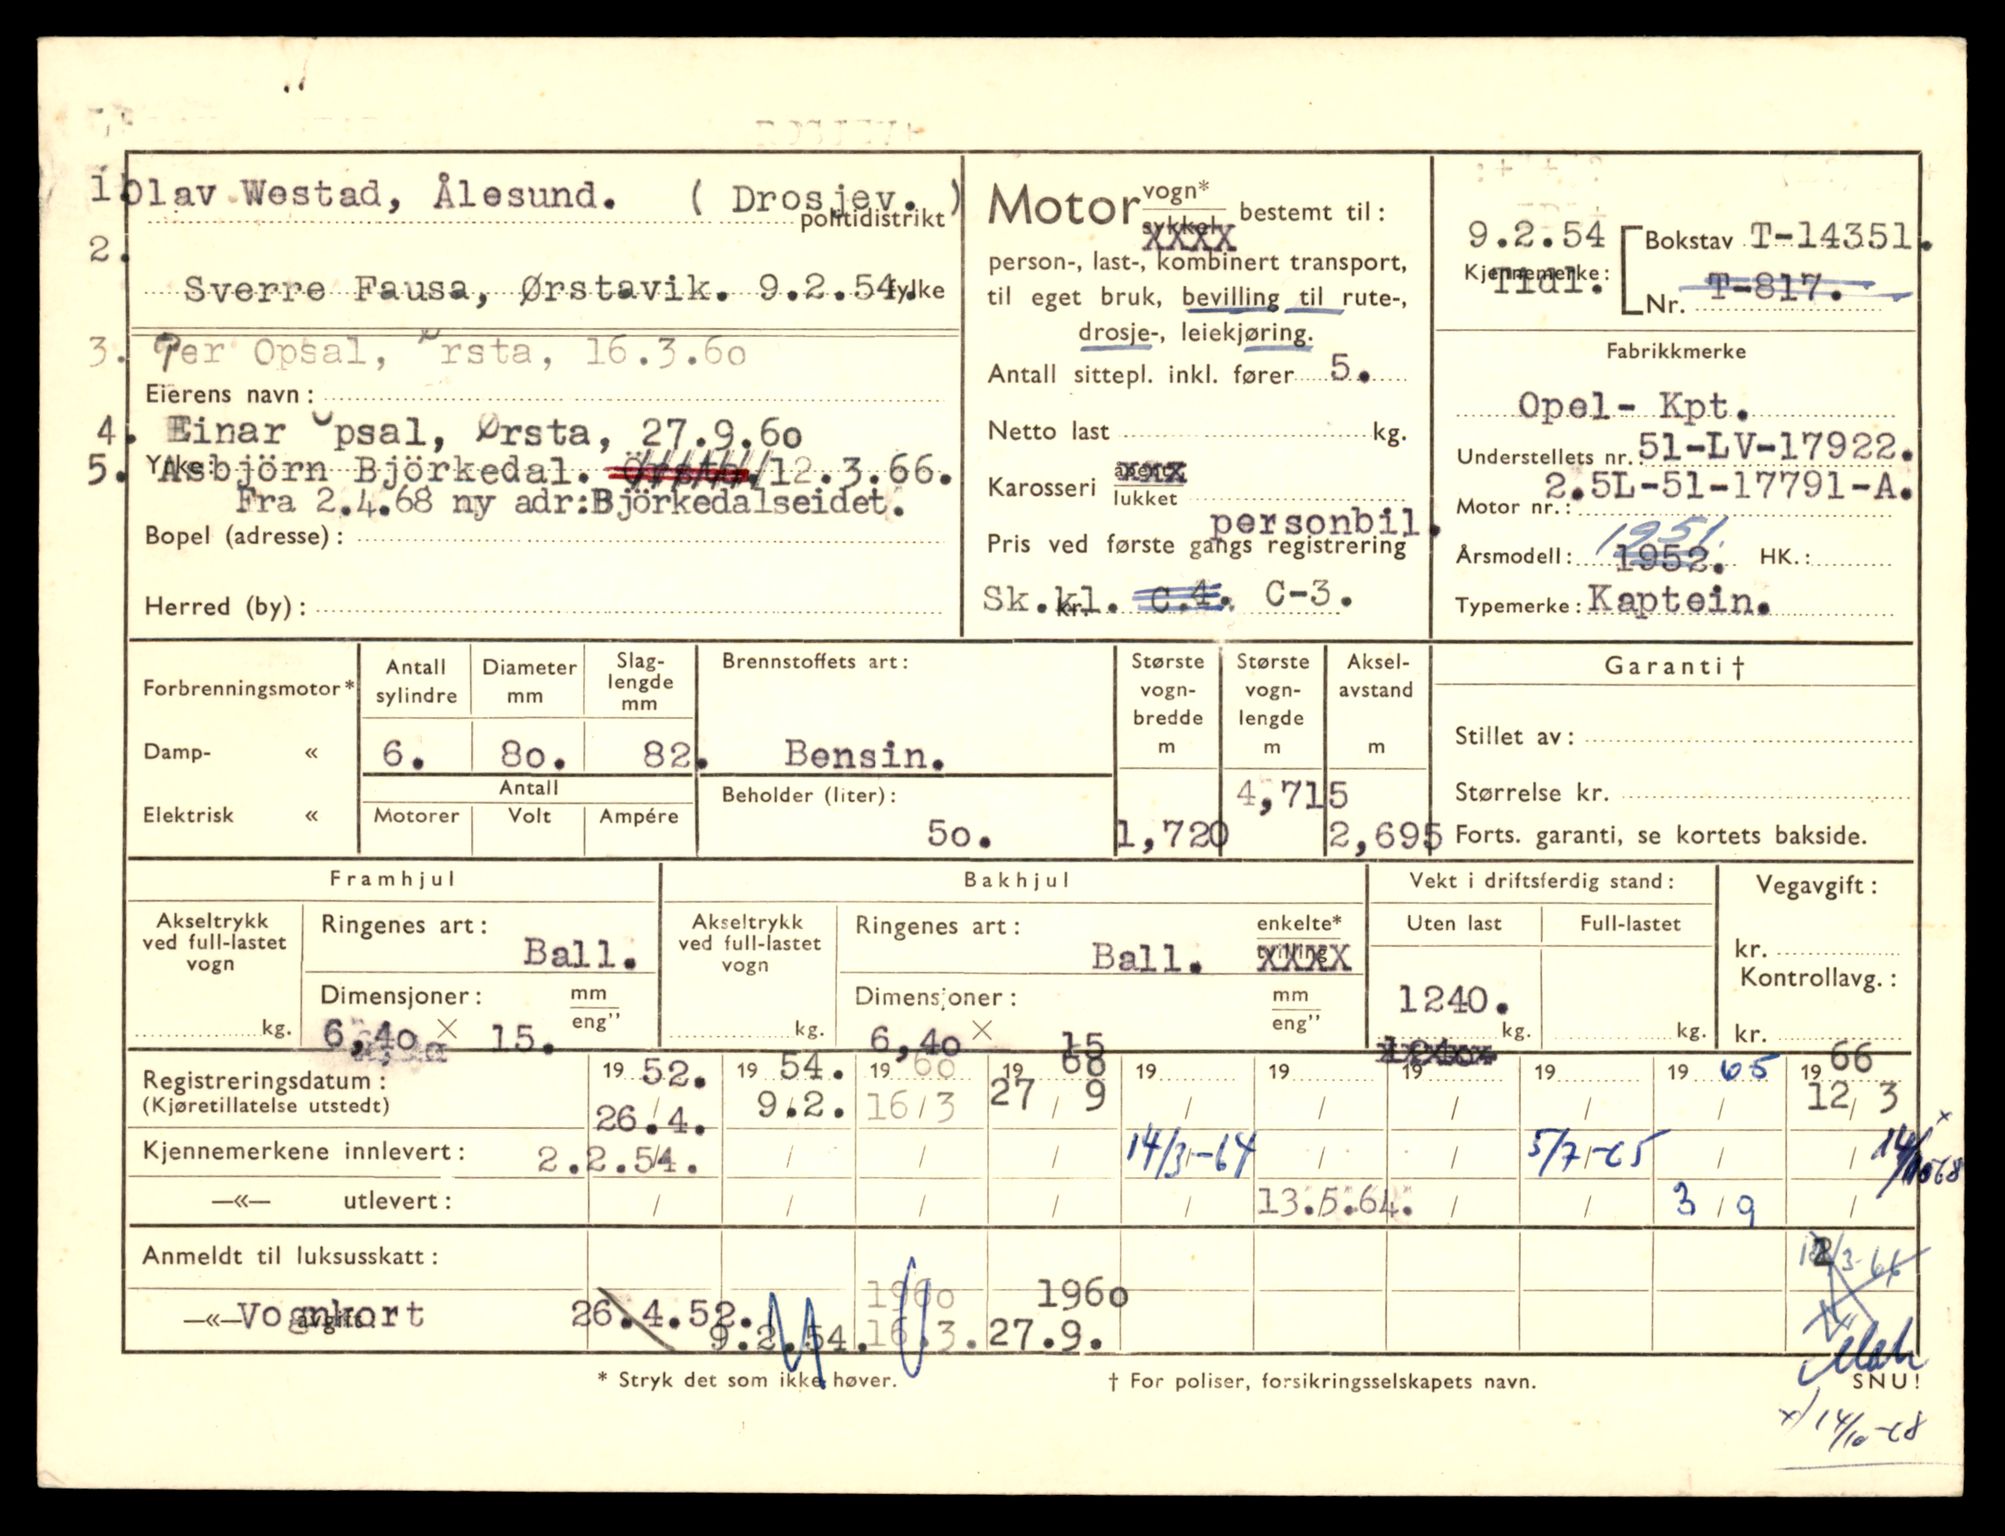 1. Olav Westad, Ålesund. ( Drosjev. )
politidistrikt
2.
Sverre Fausa, Ørstavik. 9.2.54. fylke
3. Per Opsal, Ørsta, 16.3.60
Eierens navn:
4. Einar Opsal, Ørsta, 27.9.60
5. Yrke: Asbjörn Björkedal. Örsta. 12.3.66.
Fra 2.4.68 ny adr:Björkedalseidet.
Bopel (adresse):
Herred (by):
Motor vogn* / sykkel bestemt til:
XXXX
person-, last-, kombinert transport,
til eget bruk, bevilling til rute-,
drosje-, leiekjøring.
Antall sittepl. inkl. fører 5.
Netto last kg.
Karosseri åpent / lukket
personbil.
Pris ved første gangs registrering
Sk.kl. kr. C.4. C-3.
9.2.54 Bokstav T-14351.
Kjennemerke: Tidl. Nr. T-817.
Fabrikkmerke
Opel- Kpt.
Understellets nr.: 51-LV-17922.
Motor nr.: 2.5L-51-17791-A.
1951.
Årsmodell: 1952. HK.:
Typemerke: Kaptein.
Forbrenningsmotor* Antall sylindre Diameter mm Slag-lengde mm Brennstoffets art:
Største vogn-bredde m Største vogn-lengde m Aksel-avstand m
Garanti †
Damp- « 6. 80. 82. Bensin.
Stillet av:
Antall
Elektrisk « Motorer Volt Ampére Beholder (liter): 50.
1,720 4,715 2,695
Størrelse kr.
Forts. garanti, se kortets bakside.
Framhjul Bakhjul Vekt i driftsferdig stand: Vegavgift:
Akseltrykk ved full-lastet vogn kg. Ringenes art: Ball.
Dimensjoner: mm / eng" 6,40 × 15.
Akseltrykk ved full-lastet vogn kg. Ringenes art: Ball. enkelte* / tvilling XXXX
Dimensjoner: mm / eng" 6,40 × 15
Uten last 1240. kg. Full-lastet kg.
kr.
Kontrollavg.:
kr.
Registreringsdatum: 19 52. 19 54. 19 60 19 60 19 19 19 19 19 65 19 66
(Kjøretillatelse utstedt) 26.4. 9.2. 16/3 27/9 / / / / / 12/3
Kjennemerkene innlevert: 2.2.54. / / / 14/3-64 / / 5/7-65 / 14/10-68 x
—«— utlevert: / / / / / 13.5.64. / / 3/9 /
Anmeldt til luksusskatt: 12/3-66
1960 1960
—«— avgift: Vognkort 26.4.52. 9.2.54. 16.3. 27.9.
* Stryk det som ikke høver. † For poliser, forsikringsselskapets navn. SNU!
x) 14/10-68